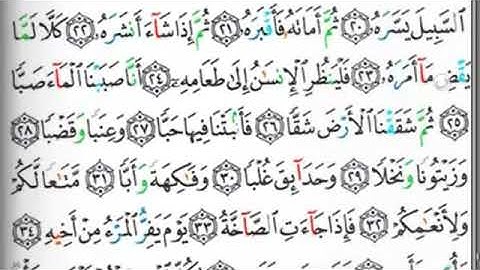 ٱلسَّبِيلَ يَسَّرَهُۥ ٢٠ ثُمَّ أَمَاتَهُۥ فَأَقۡبَرَهُۥ ٢١ ثُمَّ إِذَا شَآءَ أَنشَرَهُۥ ٢٢ كَلَّا لَمَّا
يَقۡضِ مَآ أَمَرَهُۥ ٢٣ فَلۡيَنظُرِ ٱلۡإِنسَٰنُ إِلَىٰ طَعَامِهِۦٓ ٢٤ أَنَّا صَبَبۡنَا ٱلۡمَآءَ صَبّٗا
٢٥ ثُمَّ شَقَقۡنَا ٱلۡأَرۡضَ شَقّٗا ٢٦ فَأَنۢبَتۡنَا فِيهَا حَبّٗا ٢٧ وَعِنَبٗا وَقَضۡبٗا ٢٨
وَزَيۡتُونٗا وَنَخۡلٗا ٢٩ وَحَدَآئِقَ غُلۡبٗا ٣٠ وَفَٰكِهَةٗ وَأَبّٗا ٣١ مَّتَٰعٗا لَّكُمۡ
وَلِأَنۡعَٰمِكُمۡ ٣٢ فَإِذَا جَآءَتِ ٱلصَّآخَّةُ ٣٣ يَوۡمَ يَفِرُّ ٱلۡمَرۡءُ مِنۡ أَخِيهِ ٣٤